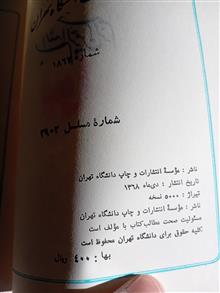 دانشگاه تهران
شمارهٔ ۱۸۶۲
شمارهٔ مسلسل ۲۹۰۳
ناشر : مؤسسهٔ انتشارات و چاپ دانشگاه تهران
تاریخ انتشار : دی‌ماه ۱۳۶۸
تیراژ : ۵۰۰۰ نسخه
چاپ : مؤسسهٔ انتشارات و چاپ دانشگاه تهران
مسئولیت صحت مطالب کتاب با مؤلف است
کلیه حقوق برای دانشگاه تهران محفوظ است
بها : ۴۰۰ ریال